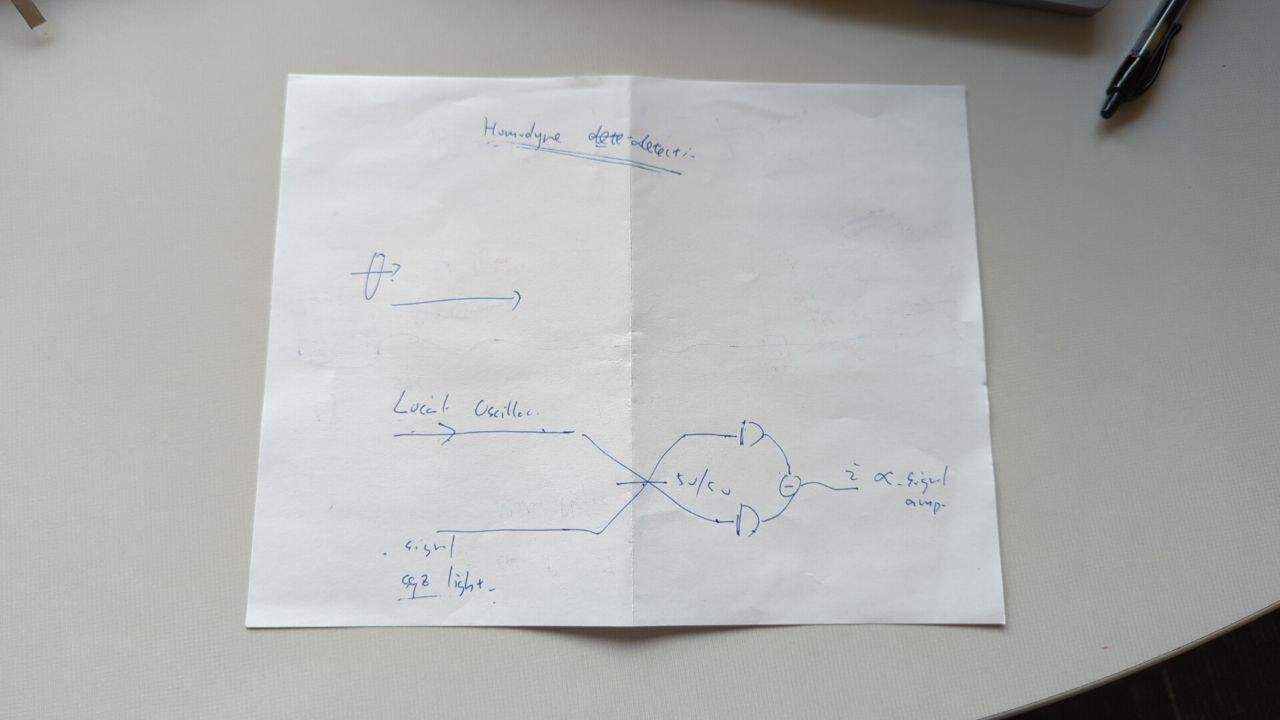 Homodyne dete detecti
Local Oscillo.
50/50
-
i ∝ signal
amp.
signal
sqz light.